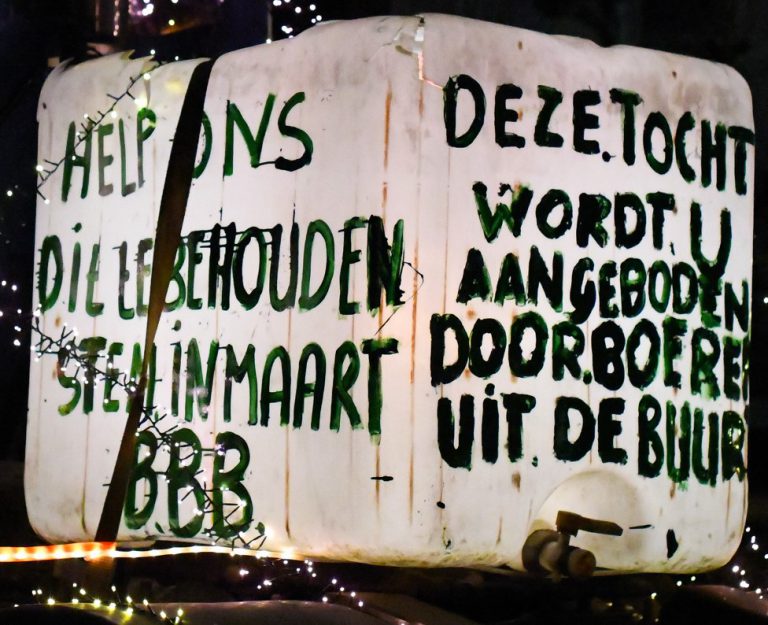 HELP ONS
DIT TE BEHOUDEN
STEM IN MAART
B.B.B.
DEZE.TOCHT
WORDT. U
AANGEBODEN
DOOR.BOEREN
UIT. DE BUUR